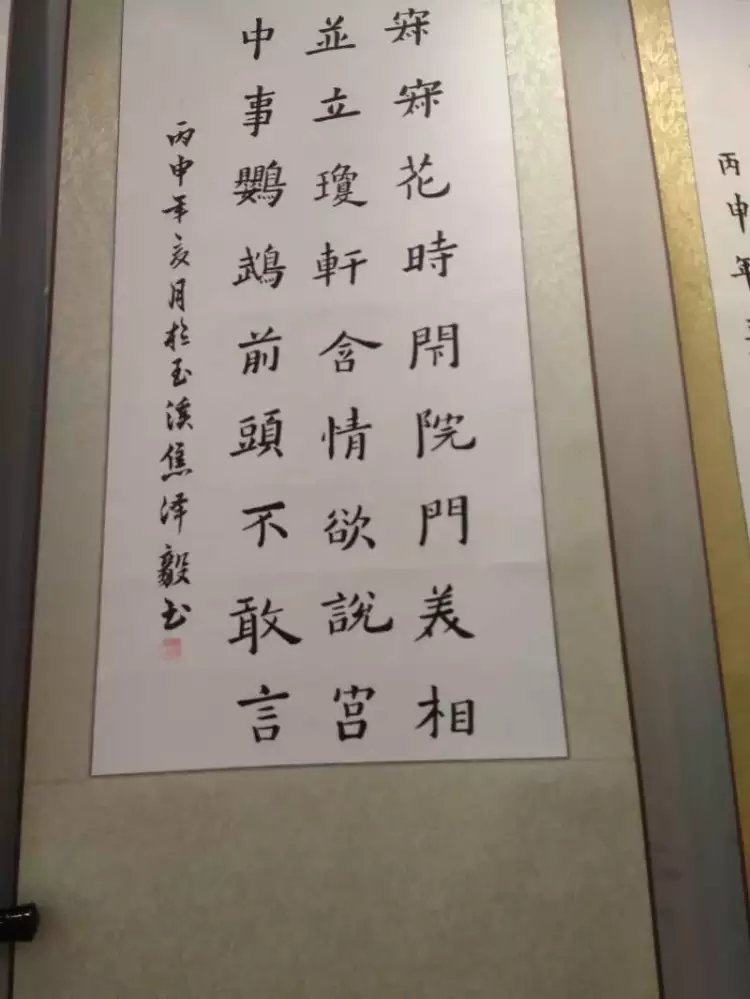 丙申年
寂寂花時閇院門美相
並立瓊軒含情欲說宮
中事鸚鵡前頭不敢言
丙申年亥月於玉溪焦泽毅书